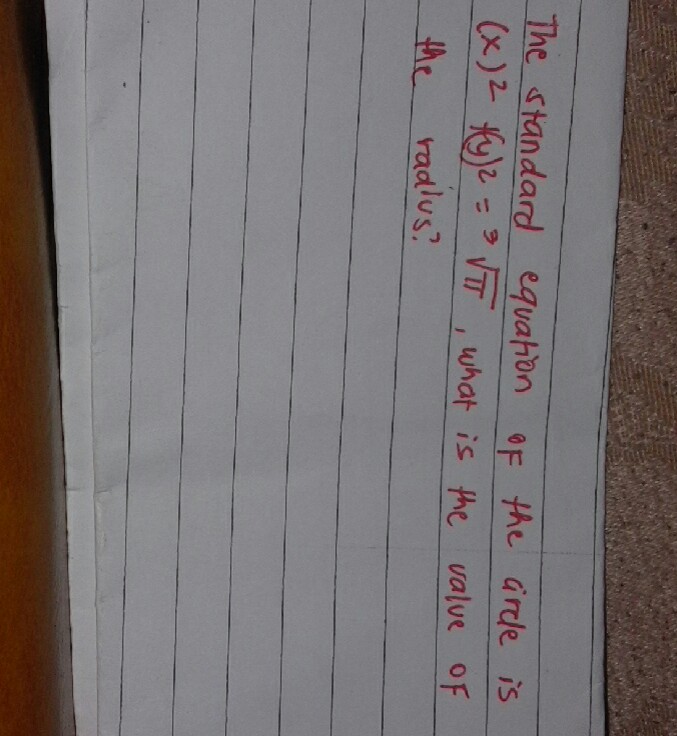 The standard equation OF the circle is
(x)2 +(y)2 = 3√π, what is the value OF
the radius?